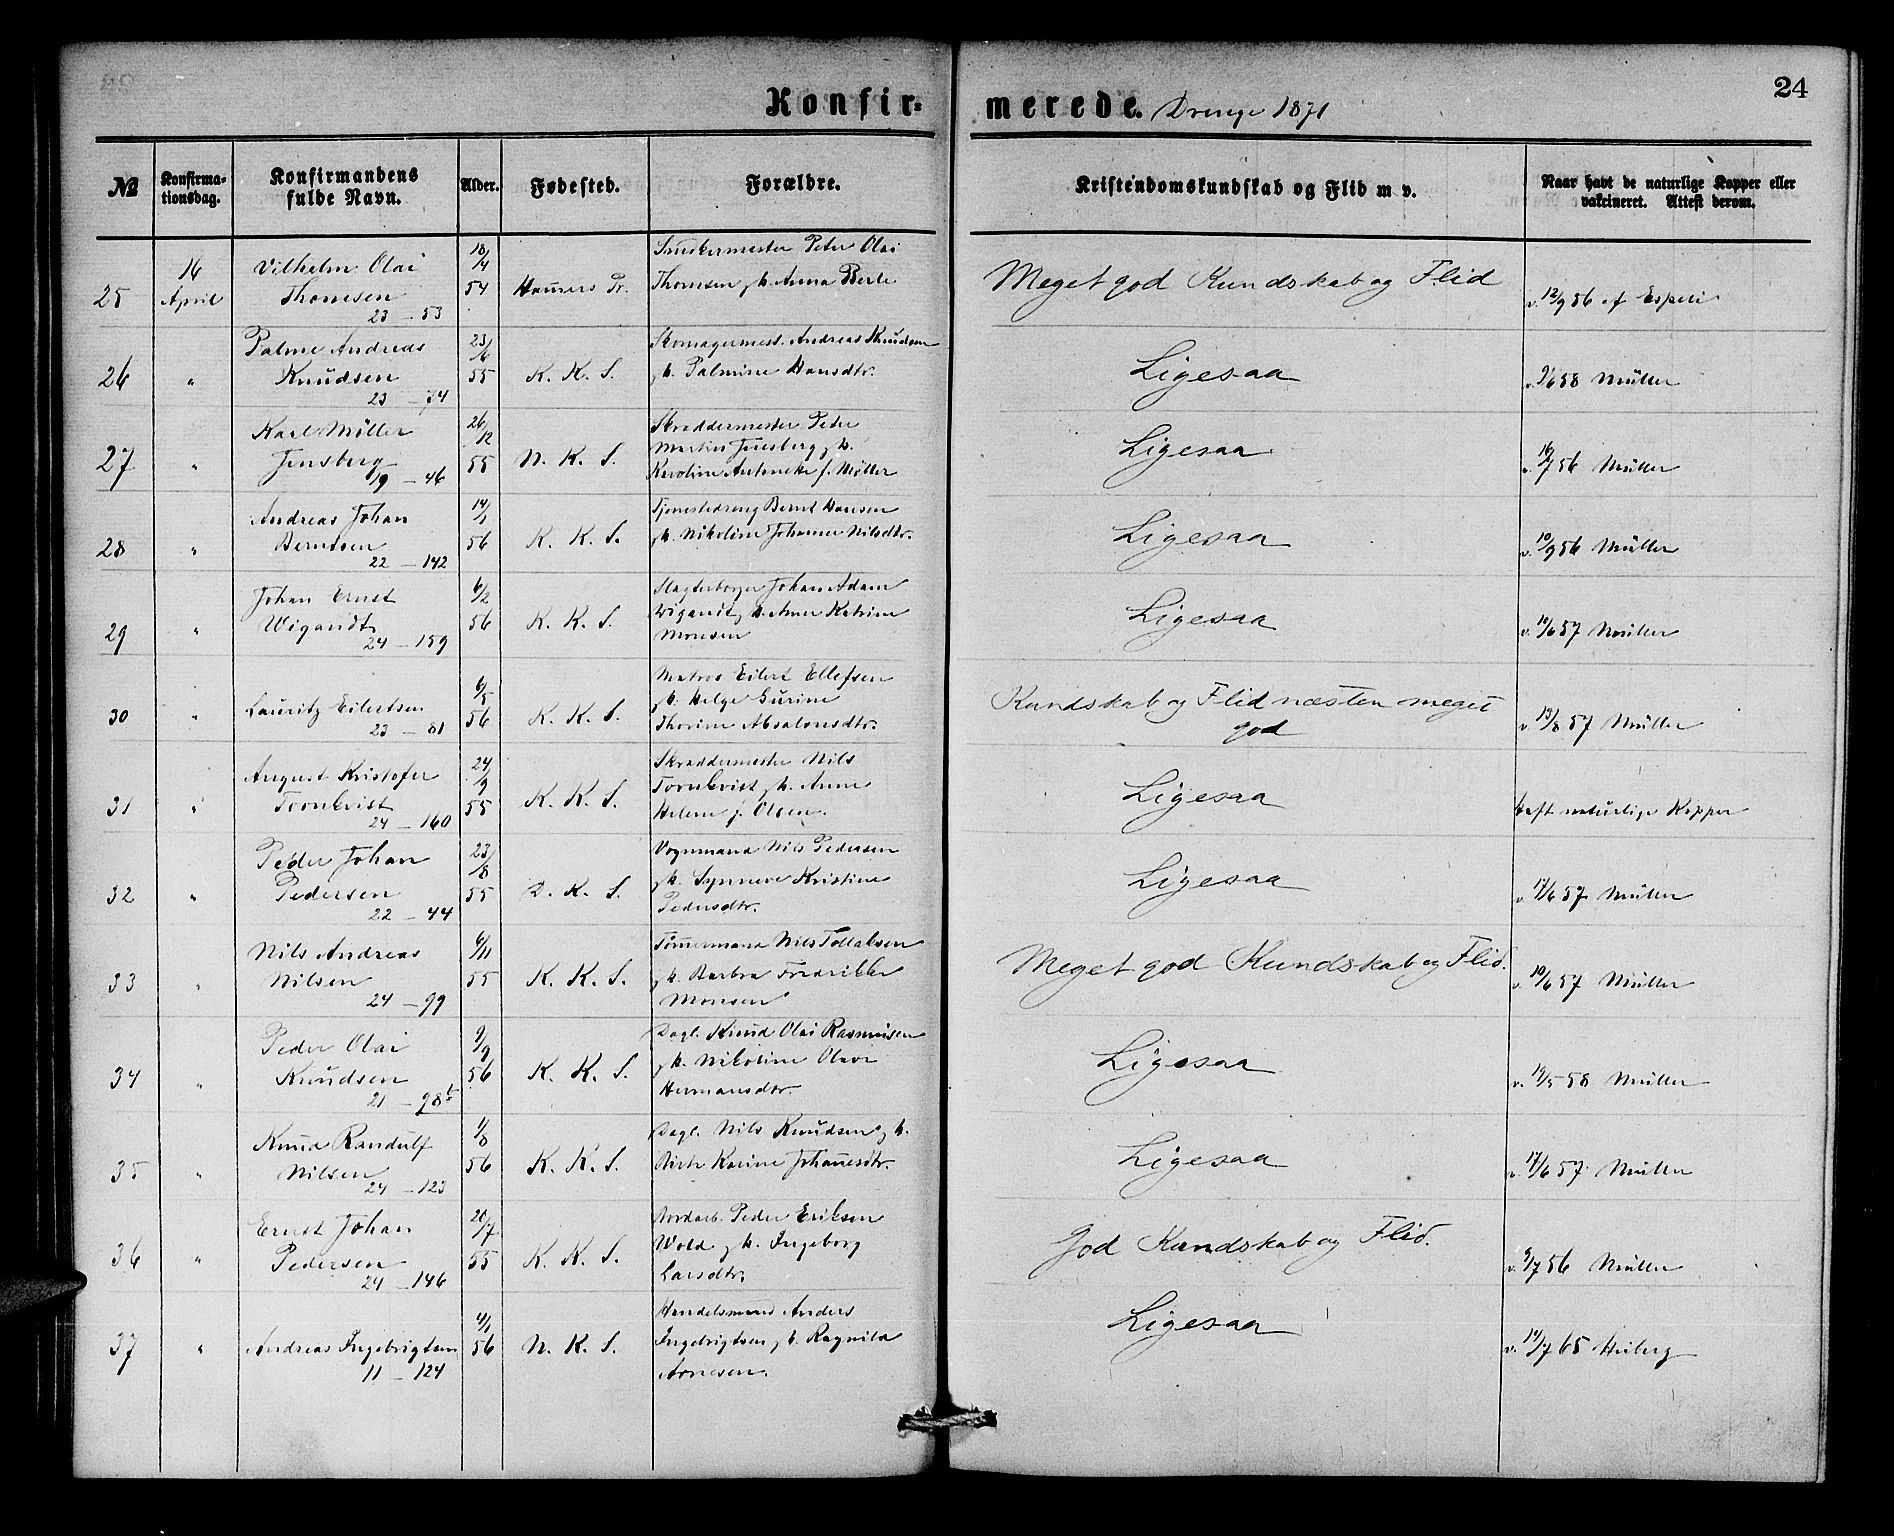 24
Konfir=merede. Drenge 1871
№ Konfirma=tionsdag. Konfirmandens fulde Navn. Alder. Fødested. Forældre. Kristendomskundskab og Flid m v. Naar havt de naturlige Kopper eller vakcineret. Attest derom.
25 16 April Vilhelm Olai Thomsen 23 – 53
18/4 54
Snedkermester Peter Olai
Thomsen og h. Anna Berle
Meget god Kundskab og Flid
v. 12/9 56 af
26 " Palme Andreas Knudsen 23 – 74
23/6 55 K. K. S.
Skomagermest. Andreas Knudsen
og h. Palmine Hansdtr.
Ligesaa
v. 9/6 58 Müller
27 " Karl Møller Jensberg 19 – 46
26/12 55 N. K. S.
Skræddermester Peter
Martin Jensberg og h.
Karoline Antoneke f. Møller
Ligesaa
v. 16/7 56 Müller
28 " Andreas Johan Berntsen 22 – 142
14/1 56 K. K. S.
Tjenestedreng Bernt Hansen
og h. Nikoline Johanne Nilsdtr.
Ligesaa
v. 10/9 56 Müller
29 " Johan Ernst Wigandt 24 – 159
6/2 56 K. K. S.
Slagterborger Johan Adam
Wigandt og h. Anne Katrine
Monsen
Ligesaa
v. 10/6 57 Müller
30 " Lauritz Eilertsen 23 – 81
6/5 56 K. K. S.
Matros Eilert Ellefsen
og h. Helge Gurine
Thorine Absalonsdtr.
Kundskab og Flid næsten meget
god
v. 19/8 57 Müller
31 " August Kristofer Tornkvist 24 – 160
24/9 55 K. K. S.
Skræddermester Nils
Tornkvist og h. Anne
Helene f. Olsen.
Ligesaa
haft naturlige Kopper
32 " Peder Johan Pedersen 22 – 44
23/8 55 D. K. S.
Vognmand Nils Pedersen
og h. Synneve Kristine
Pedersdtr.
Ligesaa
v. 17/6 57 Müller
33 " Nils Andreas Nilsen 24 – 99
6/11 55 K. K. S.
Tømermand Nils Tollaksen
og h. Barbra Fredrikke
Monsen
Meget god Kundskab og Flid.
v. 10/6 57 Müller
34 " Peder Olai Knudsen 21 – 98
9/9 56 K. K. S.
Dagl. Knud Olai Rasmusen
og h. Nikoline Olave
Hermansdtr.
Ligesaa
v. 19/5 58 Müller
35 " Knud Randulf Nilsen 24 – 123
1/8 56 K. K. S.
Dagl. Nils Knudsen og h.
Birte Karine Johanesdtr.
Ligesaa
v. 17/6 57 Müller
36 " Ernst Johan Pedersen 24 – 146
20/7 55 K. K. S.
Peder Eriksen
Wold og h. Ingeborg
Larsdtr.
God Kundskab og Flid.
v. 9/7 56 Müller
37 " Andreas Ingebrigtsen 11 – 124
4/1 56 N. K. S.
Handelsmand Anders
Ingebrigtsen og h. Ragnild
Arnesen.
Ligesaa
v. 14/7 65 Hiberg